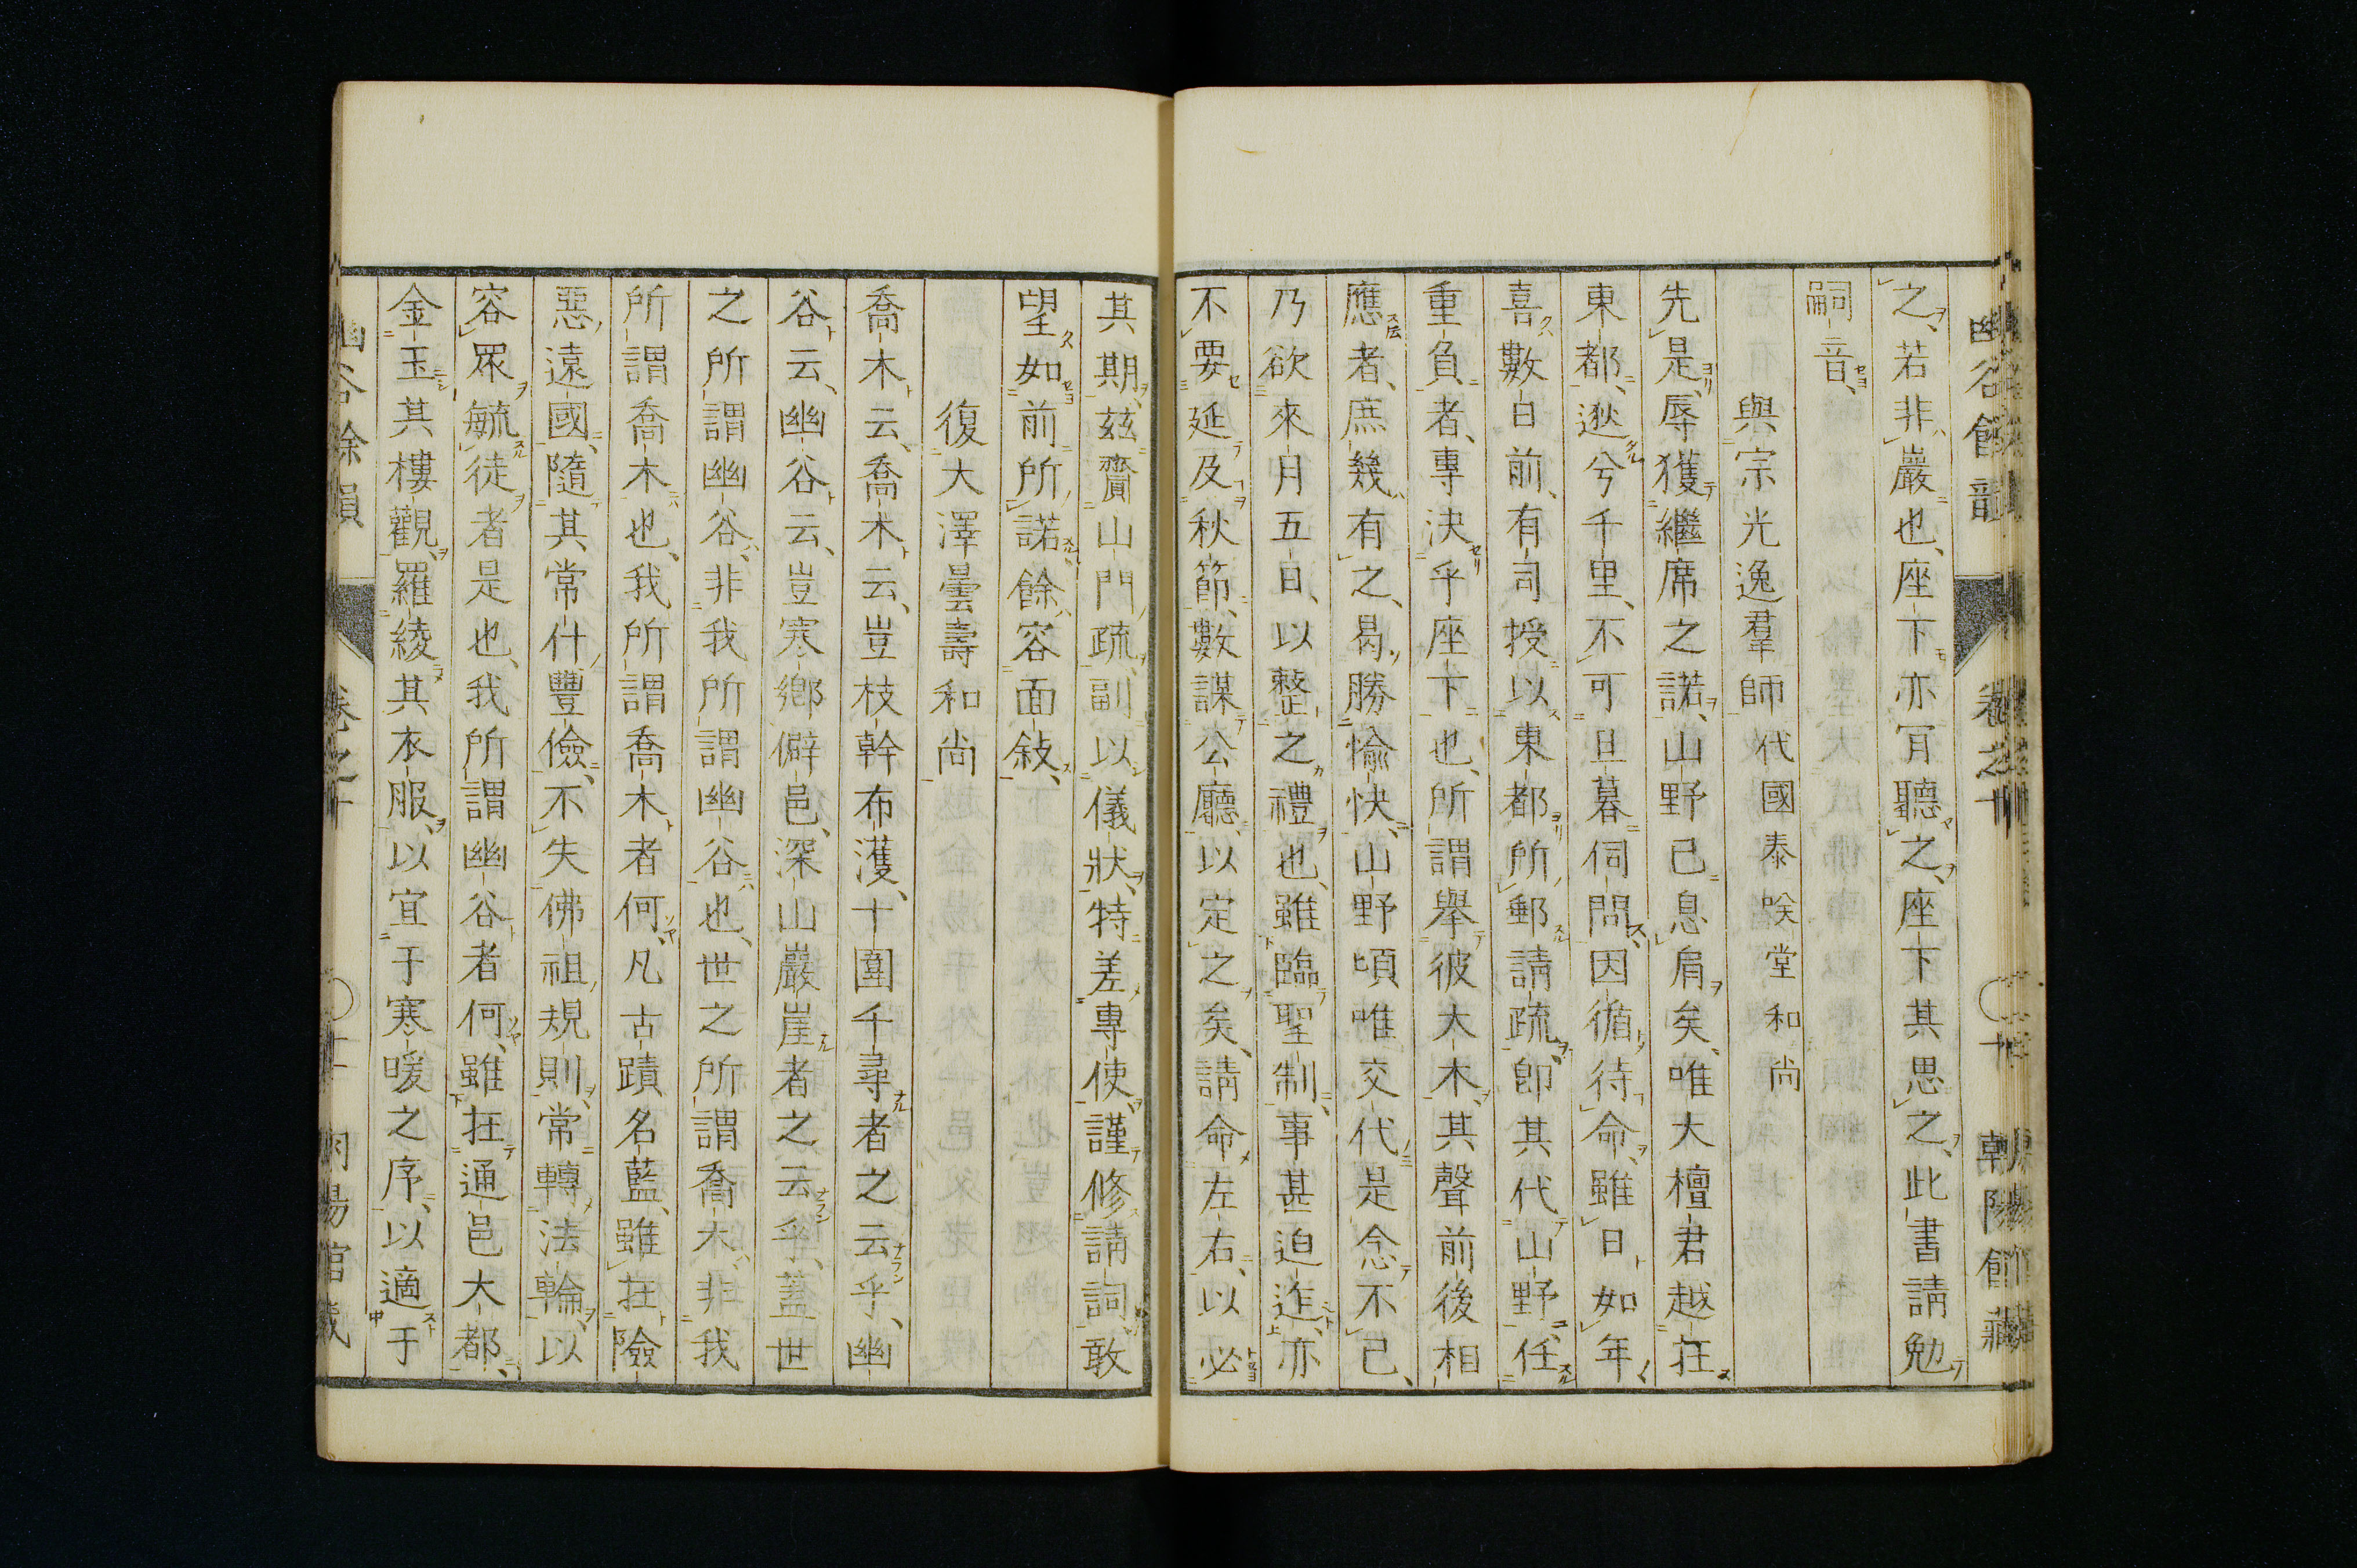 幽谷餘韻 卷之十 〇十 朝陽館藏
之、若非巖也、座下亦冝聽之、座下其思之、此書請勉
嗣音、
與宗光逸羣師代國泰唉堂和尚
先是、辱獲繼席之諾、山野已息肩矣、唯大檀君越在
東都、逖兮千里、不可旦暮伺問、因循待命、雖日如年、
喜數日前、有司授以東都所郵請疏、卽其代山野、任
重負者、專決乎座下也、所謂舉彼大木、其聲前後相
應者、庶幾有之、曷勝愉快、山野頃唯交代是念不已、
乃欲來月五日、以整之禮也、雖臨聖制、事甚迫迮、亦
不要延及秋節、數謀公廳、以定之矣、請命左右、以必
其期、茲齎山門疏、副以儀狀、特差專使、謹修請詞、敢
望如前所諾、餘容面敍、
復大澤曇壽和尚
喬木云、喬木云、豈枝幹布濩、十圍千尋者之云乎、幽
谷云、幽谷云、豈寒鄉僻邑、深山巖崖者之云乎、蓋世
之所謂幽谷、非我所謂幽谷也、世之所謂喬木、非我
所謂喬木也、我所謂喬木者何、凡古蹟名藍、雖在險
惡遠國、隨其常什豐儉、不失佛祖規則、常轉法輪、以
容眾毓徒者是也、我所謂幽谷者何、雖在通邑大都、
金玉其樓觀、羅綾其衣服、以宜于寒暖之序、以適于
谷餘韻 卷之十 〇 陽館藏